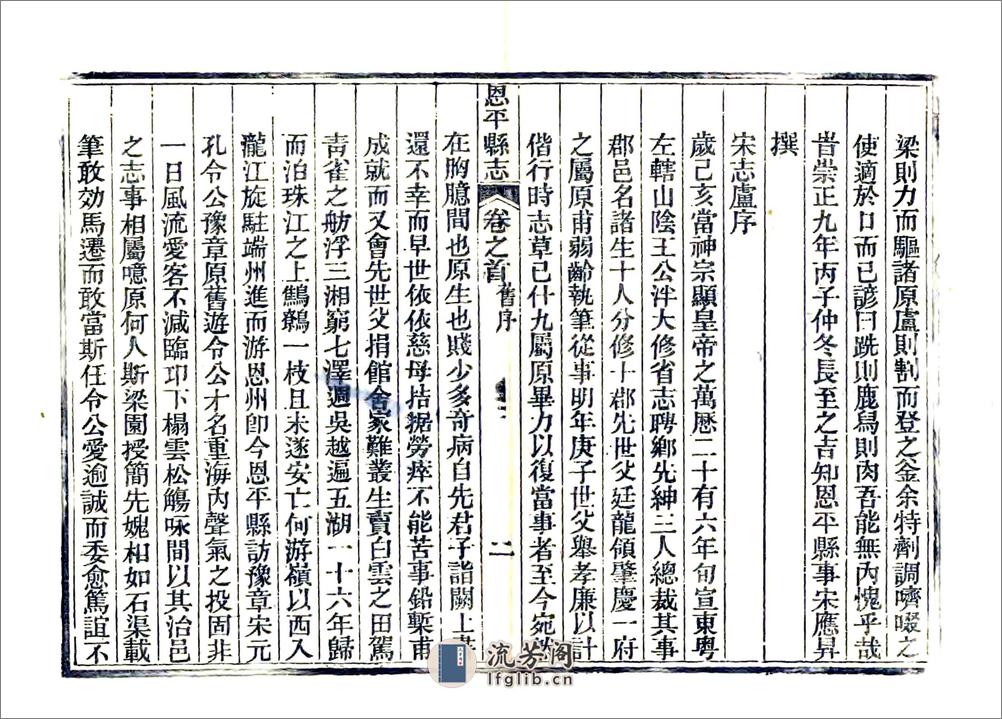 梁則力而驅諸原盧則割而登之金余特劑調嚌啜之
使適於口而已諺曰跣則鹿舄則肉吾能無內愧乎哉
旹崇正九年丙子仲冬長至之吉知恩平縣事宋應昇
撰
宋志盧序
歲己亥當神宗顯皇帝之萬曆二十有六年旬宣東粵
左轄山陰王公泮大修省志聘鄉先紳三人總裁其事
郡邑名諸生十人分修十郡先世父廷龍領肇慶一府
之屬原甫弱齡執筆從事明年庚子世父舉孝廉以計
偕行時志草已什九屬原畢力以復當事者至今宛
恩平縣志
卷之首
舊序
二
在胸臆間也原生也賤少多奇病自先君子詣闕上
還不幸而早世依依慈母拮据勞瘁不能苦事鉛槧甫
成就而又會先世父捐館舍家難叢生賣白雲之田駕
靑雀之舫浮三湘窮七澤週吳越遍五湖一十六年歸
而泊珠江之上鷦鷯一枝且未遂安亡何游嶺以西入
瀧江旋駐端州進而游恩州卽今恩平縣訪豫章宋元
孔令公豫章原舊遊令公才名重海內聲氣之投固非
一日風流愛客不減臨卭下榻雲松觴咏間以其治邑
之志事相屬噫原何人斯梁園授簡先媿相如石渠載
筆敢効馬遷而敢當斯任令公愛逾誠而委愈篤誼不
流芳阁
lfglib.cn